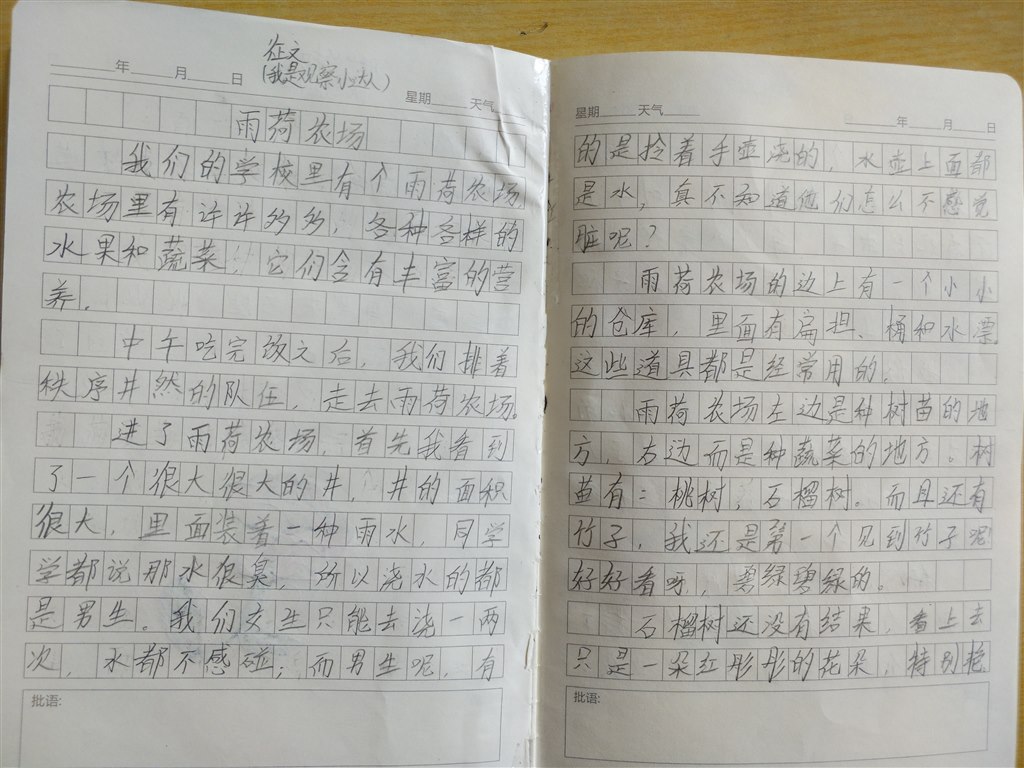 征文
(我是观察小达人)
年 月 日
星期 天气
雨荷农场
我们的学校里有个雨荷农场,
农场里有许许多多,各种各样的
水果和蔬菜,它们含有丰富的营
养.
中午吃完饭之后,我们排着
秩序井然的队伍,走去雨荷农场.
进了雨荷农场,首先我看到
了一个很大很大的井,井的面积
很大,里面装着一种雨水,同学
学都说那水很臭,所以浇水的都
是男生。我们女生只能去浇一两
次,水都不感碰;而男生呢,有
批语:
星期 天气
年 月 日
的是拎着手壶浇的,水壶上面都
是水,真不知道他们怎么不感觉
脏呢?
雨荷农场的边上有一个小小
的仓库,里面有扁担、桶和水漂
这些道具都是经常用的.
雨荷农场左边是种树苗的地
方,右边而是种蔬菜的地方。树
苗有:桃树,石榴树。而且还有
竹子,我还是第一个见到竹子呢
好好看呀,碧绿碧绿的。
石榴树还没有结果,看上去
只是一朵红彤彤的花朵,特别艳
批语: